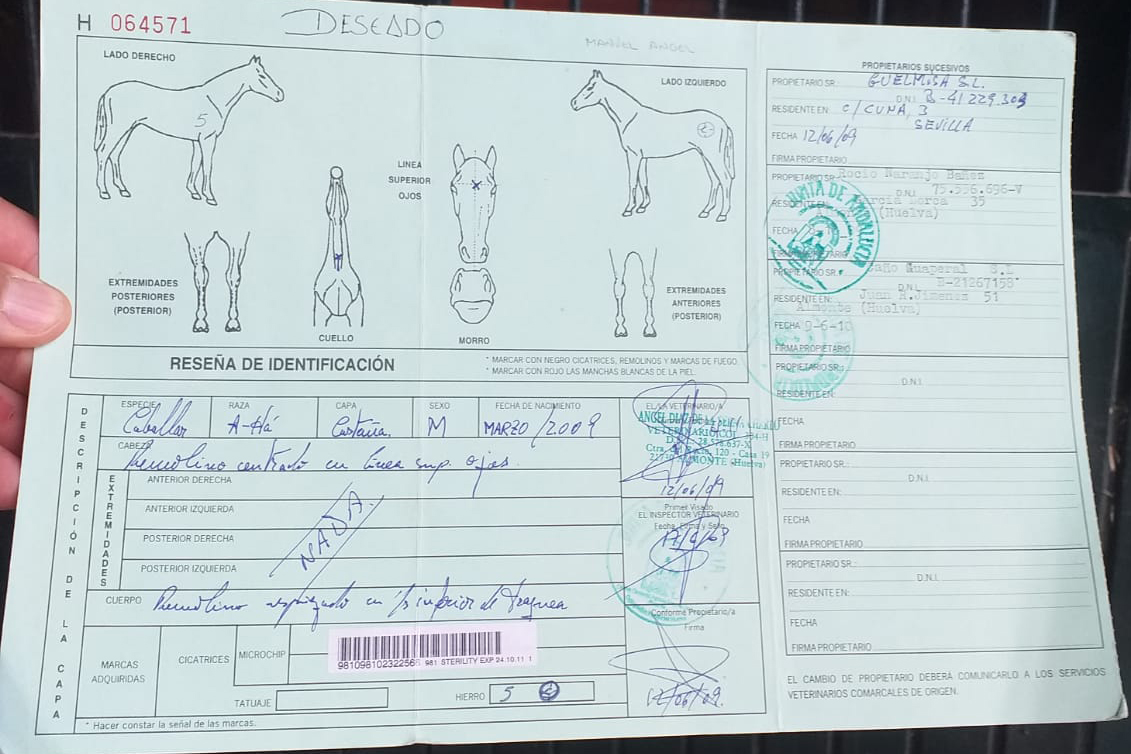 H 064571
DESEADO
MANUEL ANGEL
LADO DERECHO
LADO IZQUIERDO
5
LINEA
SUPERIOR
OJOS
EXTREMIDADES
POSTERIORES
(POSTERIOR)
CUELLO
MORRO
EXTREMIDADES
ANTERIORES
(POSTERIOR)
RESEÑA DE IDENTIFICACIÓN
* MARCAR CON NEGRO CICATRICES, REMOLINOS Y MARCAS DE FUEGO.
* MARCAR CON ROJO LAS MANCHAS BLANCAS DE LA PIEL.
DESCRIPCIÓN DE LA CAPA
ESPECIE Caballar
RAZA A-Há
CAPA Castaña
SEXO M
FECHA DE NACIMIENTO MARZO / 2009
CABEZA Remolino centrado en línea sup. ojos.
EXTREMIDADES
ANTERIOR DERECHA
ANTERIOR IZQUIERDA
POSTERIOR DERECHA
POSTERIOR IZQUIERDA
NADA
CUERPO Remolino en inferior de traquea
MARCAS
ADQUIRIDAS
CICATRICES
MICROCHIP
981098102322566 981 STERILITY EXP 24.10.11 1
TATUAJE
HIERRO 5
* Hacer constar la señal de las marcas.
EL/LA VETERINARIO/A
ANGEL DIAZ DE LA
VETERINARIO
28.576.637-X
Ctra. 120 - Casa 19
ALMONTE (Huelva)
12/06/09
Primer Visado
EL INSPECTOR VETERINARIO
Fecha, Firma y Sello
Conforme Propietario/a
Firma
12/06/09.
PROPIETARIOS SUCESIVOS
PROPIETARIO SR. GUELMISA S.L.
D.N.I. B-41229.303
RESIDENTE EN C/ CUNA, 3
SEVILLA
FECHA 12/06/09
FIRMA PROPIETARIO
PROPIETARIO SR. Rocio Naranjo Bañez
D.N.I. 75.556.696-V
RESIDENTE EN Lorca 35
(Huelva)
FECHA
FIRMA PROPIETARIO
JUNTA DE ANDALUCIA
PROPIETARIO SR. Guaperal S.L
D.N.I. B-21267158
RESIDENTE EN: Juan R.Jimenez 51
Almonte (Huelva)
FECHA 9-6-10
FIRMA PROPIETARIO
PROPIETARIO SR.:
D.N.I.
RESIDENTE EN:
FECHA
FIRMA PROPIETARIO
PROPIETARIO SR.:
D.N.I.
RESIDENTE EN:
FECHA
FIRMA PROPIETARIO
PROPIETARIO SR.:
D.N.I.
RESIDENTE EN:
FECHA
FIRMA PROPIETARIO
EL CAMBIO DE PROPIETARIO DEBERÁ COMUNICARLO A LOS SERVICIOS
VETERINARIOS COMARCALES DE ORIGEN.